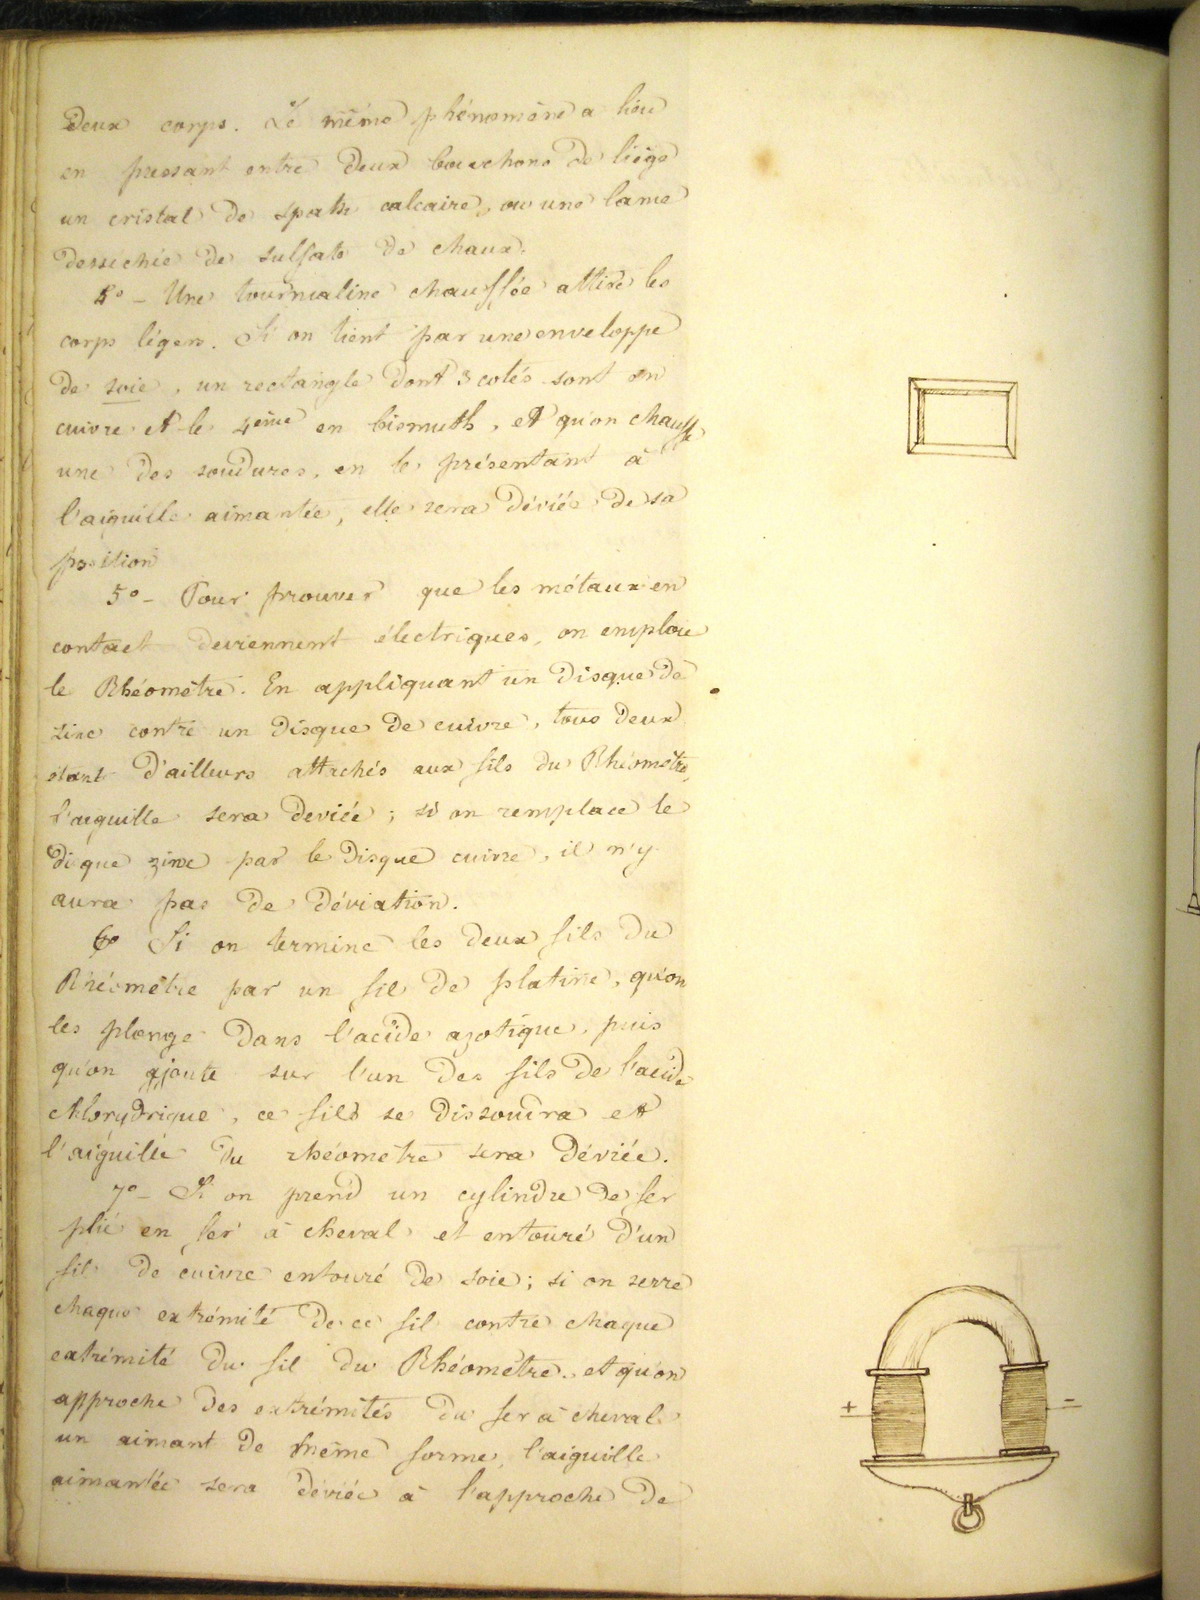 deux corps. Le même phénomène a lieu
en pressant entre deux bouchons de liège
un cristal de spath calcaire, ou une lame
desséchée de sulfate de chaux.
4° - Une tourmaline chauffée attire les
corps légers. Si on tient par une enveloppe
de soie, un rectangle dont 3 cotés sont en
cuivre et le 4ème en bismuth, et qu'on chauffe
une des soudures, en le présentant à
l'aiguille aimantée, elle sera déviée de sa
position
5° - Pour prouver que les métaux en
contact deviennent électriques, on emploie
le Rhéomètre. En appliquant un disque de
zinc contre un disque de cuivre, tous deux
étant d'ailleurs attachés aux fils du Rhéomètre,
l'aiguille sera deviée ; si on remplace le
disque zinc par le disque cuivre, il n'y
aura pas de déviation.
6° Si on termine les deux fils du
Rhéomètre par un fil de platine, qu'on
les plonge dans l'acide azotique, puis
qu'on ajoute sur l'un des fils de l'acide
chlorydrique, ce fils se dissoudra et
l'aiguille du rhéomètre sera déviée.
7° - Si on prend un cylindre de fer
plié en fer à cheval et entouré d'un
fil de cuivre entouré de soie ; si on serre
chaque extrémité de ce fil contre chaque
extrémité du fil du Rhéomètre, et qu'on
approche des extrémités du fer à cheval
un aimant de même forme, l'aiguille
aimantée sera déviée à l'approche de
+ -